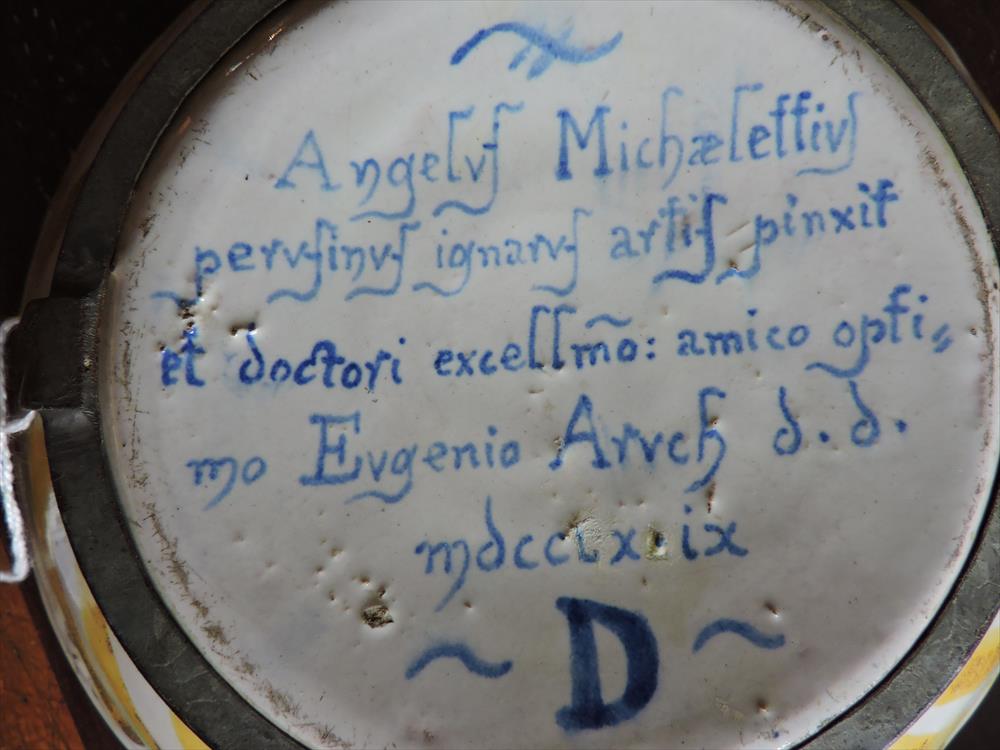 Angelvs Michælettivs
pervsinvs ignarvs artis pinxit
et doctori excellm̃o: amico opti=
mo Evgenio Arvch d. d.
mdcclxxix
~ D ~